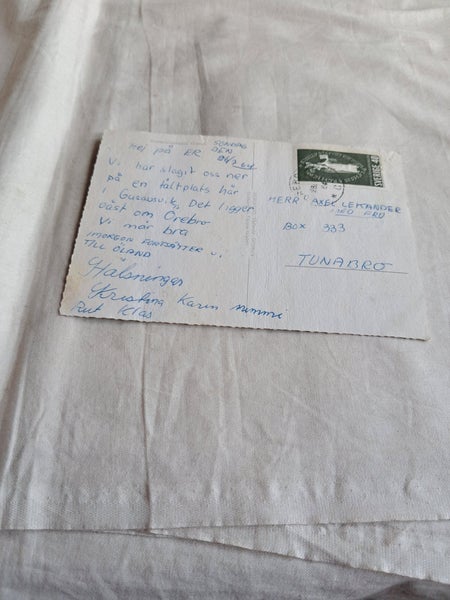 Hej på ER SÖNDAG
DEN
Vi har slagit oss ner
på en tältplats här
i Gususv.k, Det ligger
väst om Örebro
Vi mår bra
IMORGON FORTSÄTTER VI
TILL ÖLAND
Hälsningar
Kristina Karin mimmi
Rut Klas
SVERIGE 40
HERR AXEL LEKANDER
MED FRU
BOX 333
TUNABRO